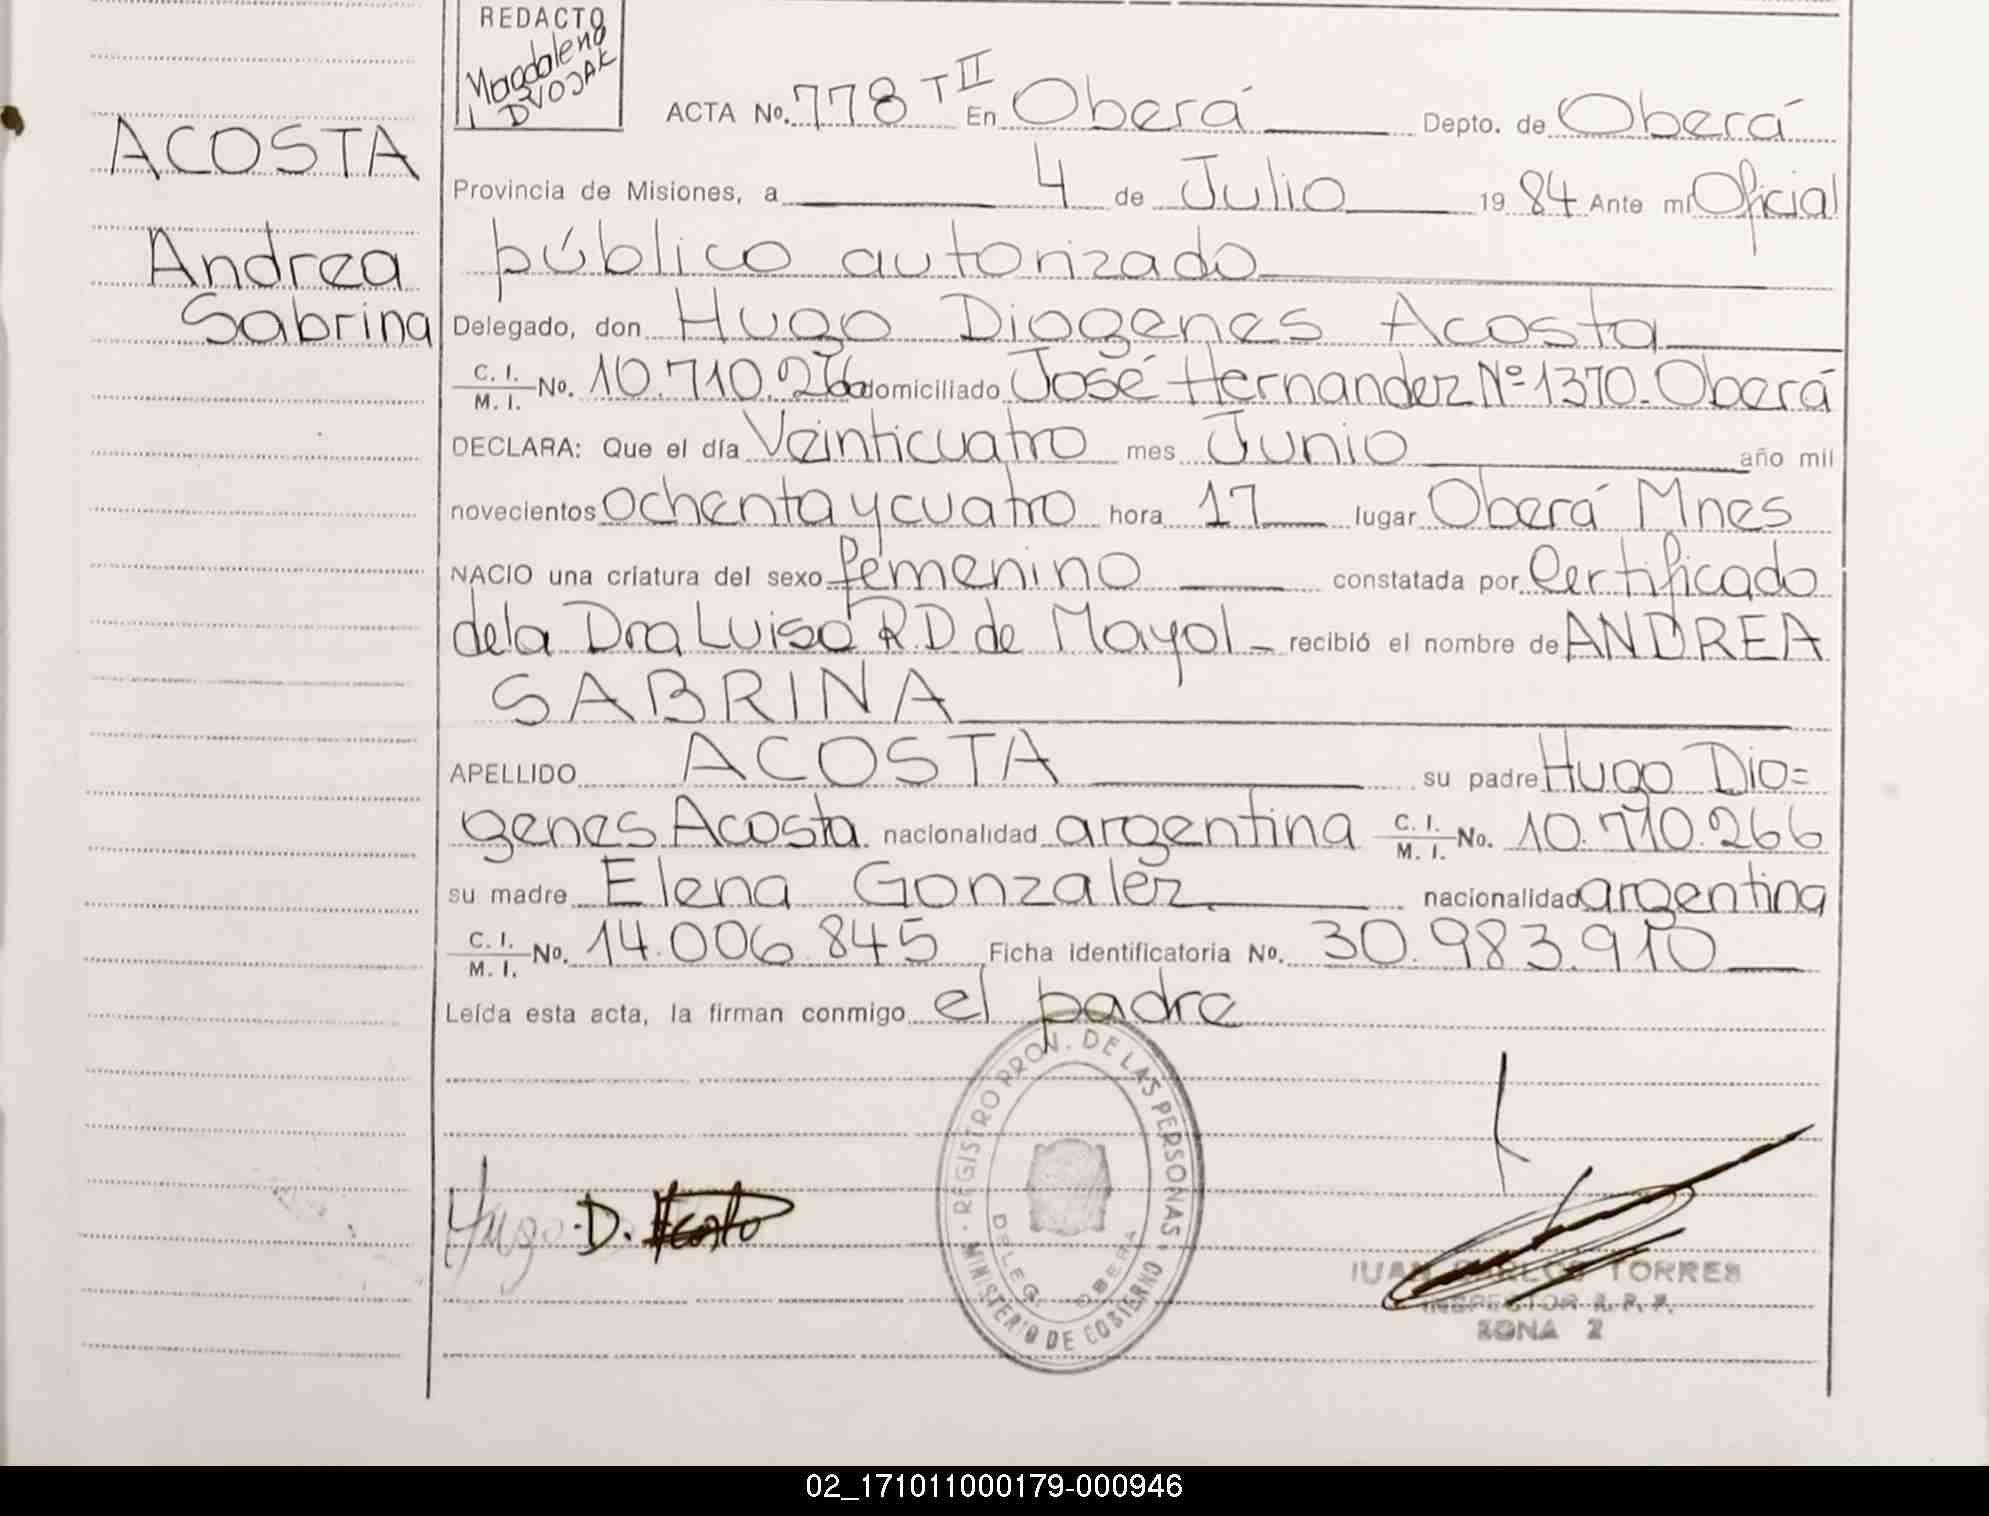 REDACTO
Magdalena
DVOJAK
ACOSTA
Andrea
Sabrina
ACTA No. 778 T II En Oberá Depto. de Oberá
Provincia de Misiones, a 4 de Julio 1984 Ante mí Oficial
público autorizado
Delegado, don Hugo Diogenes Acosta
C. I. / M. I. No. 10.710.266 domiciliado José Hernandez Nº 1370. Oberá
DECLARA: Que el día Veinticuatro mes Junio año mil
novecientos ochenta y cuatro hora 17 lugar Oberá Mnes
NACIO una criatura del sexo femenino constatada por Certificado
de la Dra Luisa R.D. de Mayol recibió el nombre de ANDREA
SABRINA
APELLIDO ACOSTA su padre Hugo Dio=
genes Acosta nacionalidad argentina C. I. / M. I. No. 10.710.266
su madre Elena Gonzalez nacionalidad argentina
C. I. / M. I. No. 14.006.845 Ficha identificatoria No. 30.983.910
Leída esta acta, la firman conmigo el padre
REGISTRO PROV. DE LAS PERSONAS
DELEG. OBERA
MINISTERIO DE GOBIERNO
Hugo D. Acosta
JUAN CARLOS TORRES
INSPECTOR R. P. P.
ZONA 2
02_171011000179-000946